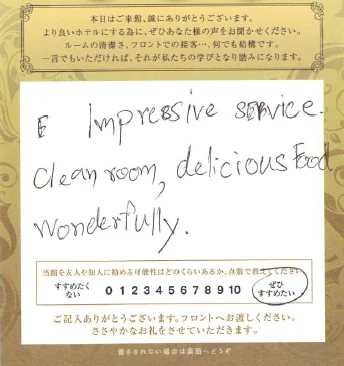 本日はご来館、誠にありがとうございます。
より良いホテルにする為に、ぜひあなた様の声をお聞かせください。
ルームの清潔さ、フロントでの接客…、何でも結構です。
一言でもいただければ、それが私たちの学びとなり励みになります。
E Impressive service.
clean room, delicious Food
wonderfully.
当館を友人や知人に勧める可能性はどのくらいあるか、点数で教えてください
すすめたくない 0 1 2 3 4 5 6 7 8 9 10 ぜひすすめたい
ご記入ありがとうございます。フロントへお渡しください。
ささやかなお礼をさせていただきます。
書ききれない場合は裏面へどうぞ